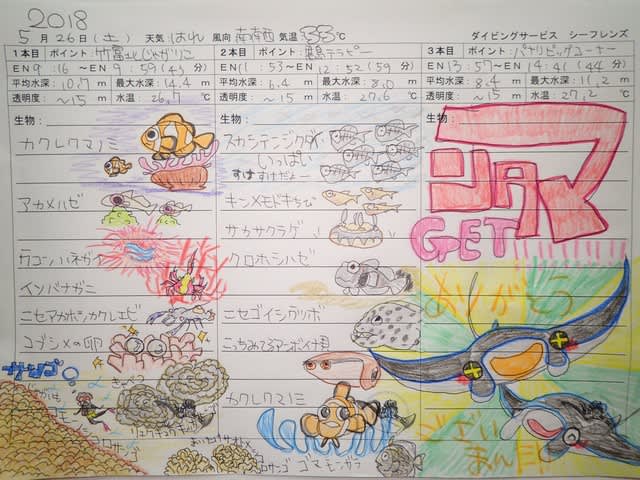 2018
5月26日(土) 天気 はれ 風向 南南西 気温 33℃ ダイビングサービス シーフレンズ
1本目 ポイント:竹富北じゃがりこ
EN 9:16~EN 9:59(43分)
平均水深:10.7m 最大水深:14.4m
透明度:~15m 水温:26.7℃
生物:
カクレクマノミ
アカメハゼ
ウコンハネガイ
イソバナガニ
ニセアカホシカクレエビ
コブシメの卵
サンゴ
2本目 ポイント:黒島テラピー
EN 11:53~EN 12:52(59分)
平均水深:6.4m 最大水深:8.0m
透明度:~15m 水温:27.6℃
生物:
スカシテンジクダイ
いっぱい
すけすけだよー
キンメモドキちび
サカサクラゲ
クロホシハゼ
ニセゴイシウツボ
こっちみてるアーボイナ君
カクレクマノミ
ゴマモンガラ
3本目 ポイント:パナリビッグコーナー
EN 13:57~EN 14:41(44分)
平均水深:8.4m 最大水深:11.2m
透明度:~15m 水温:27.2℃
生物:
マンタ
GET
ありがとう
ございま